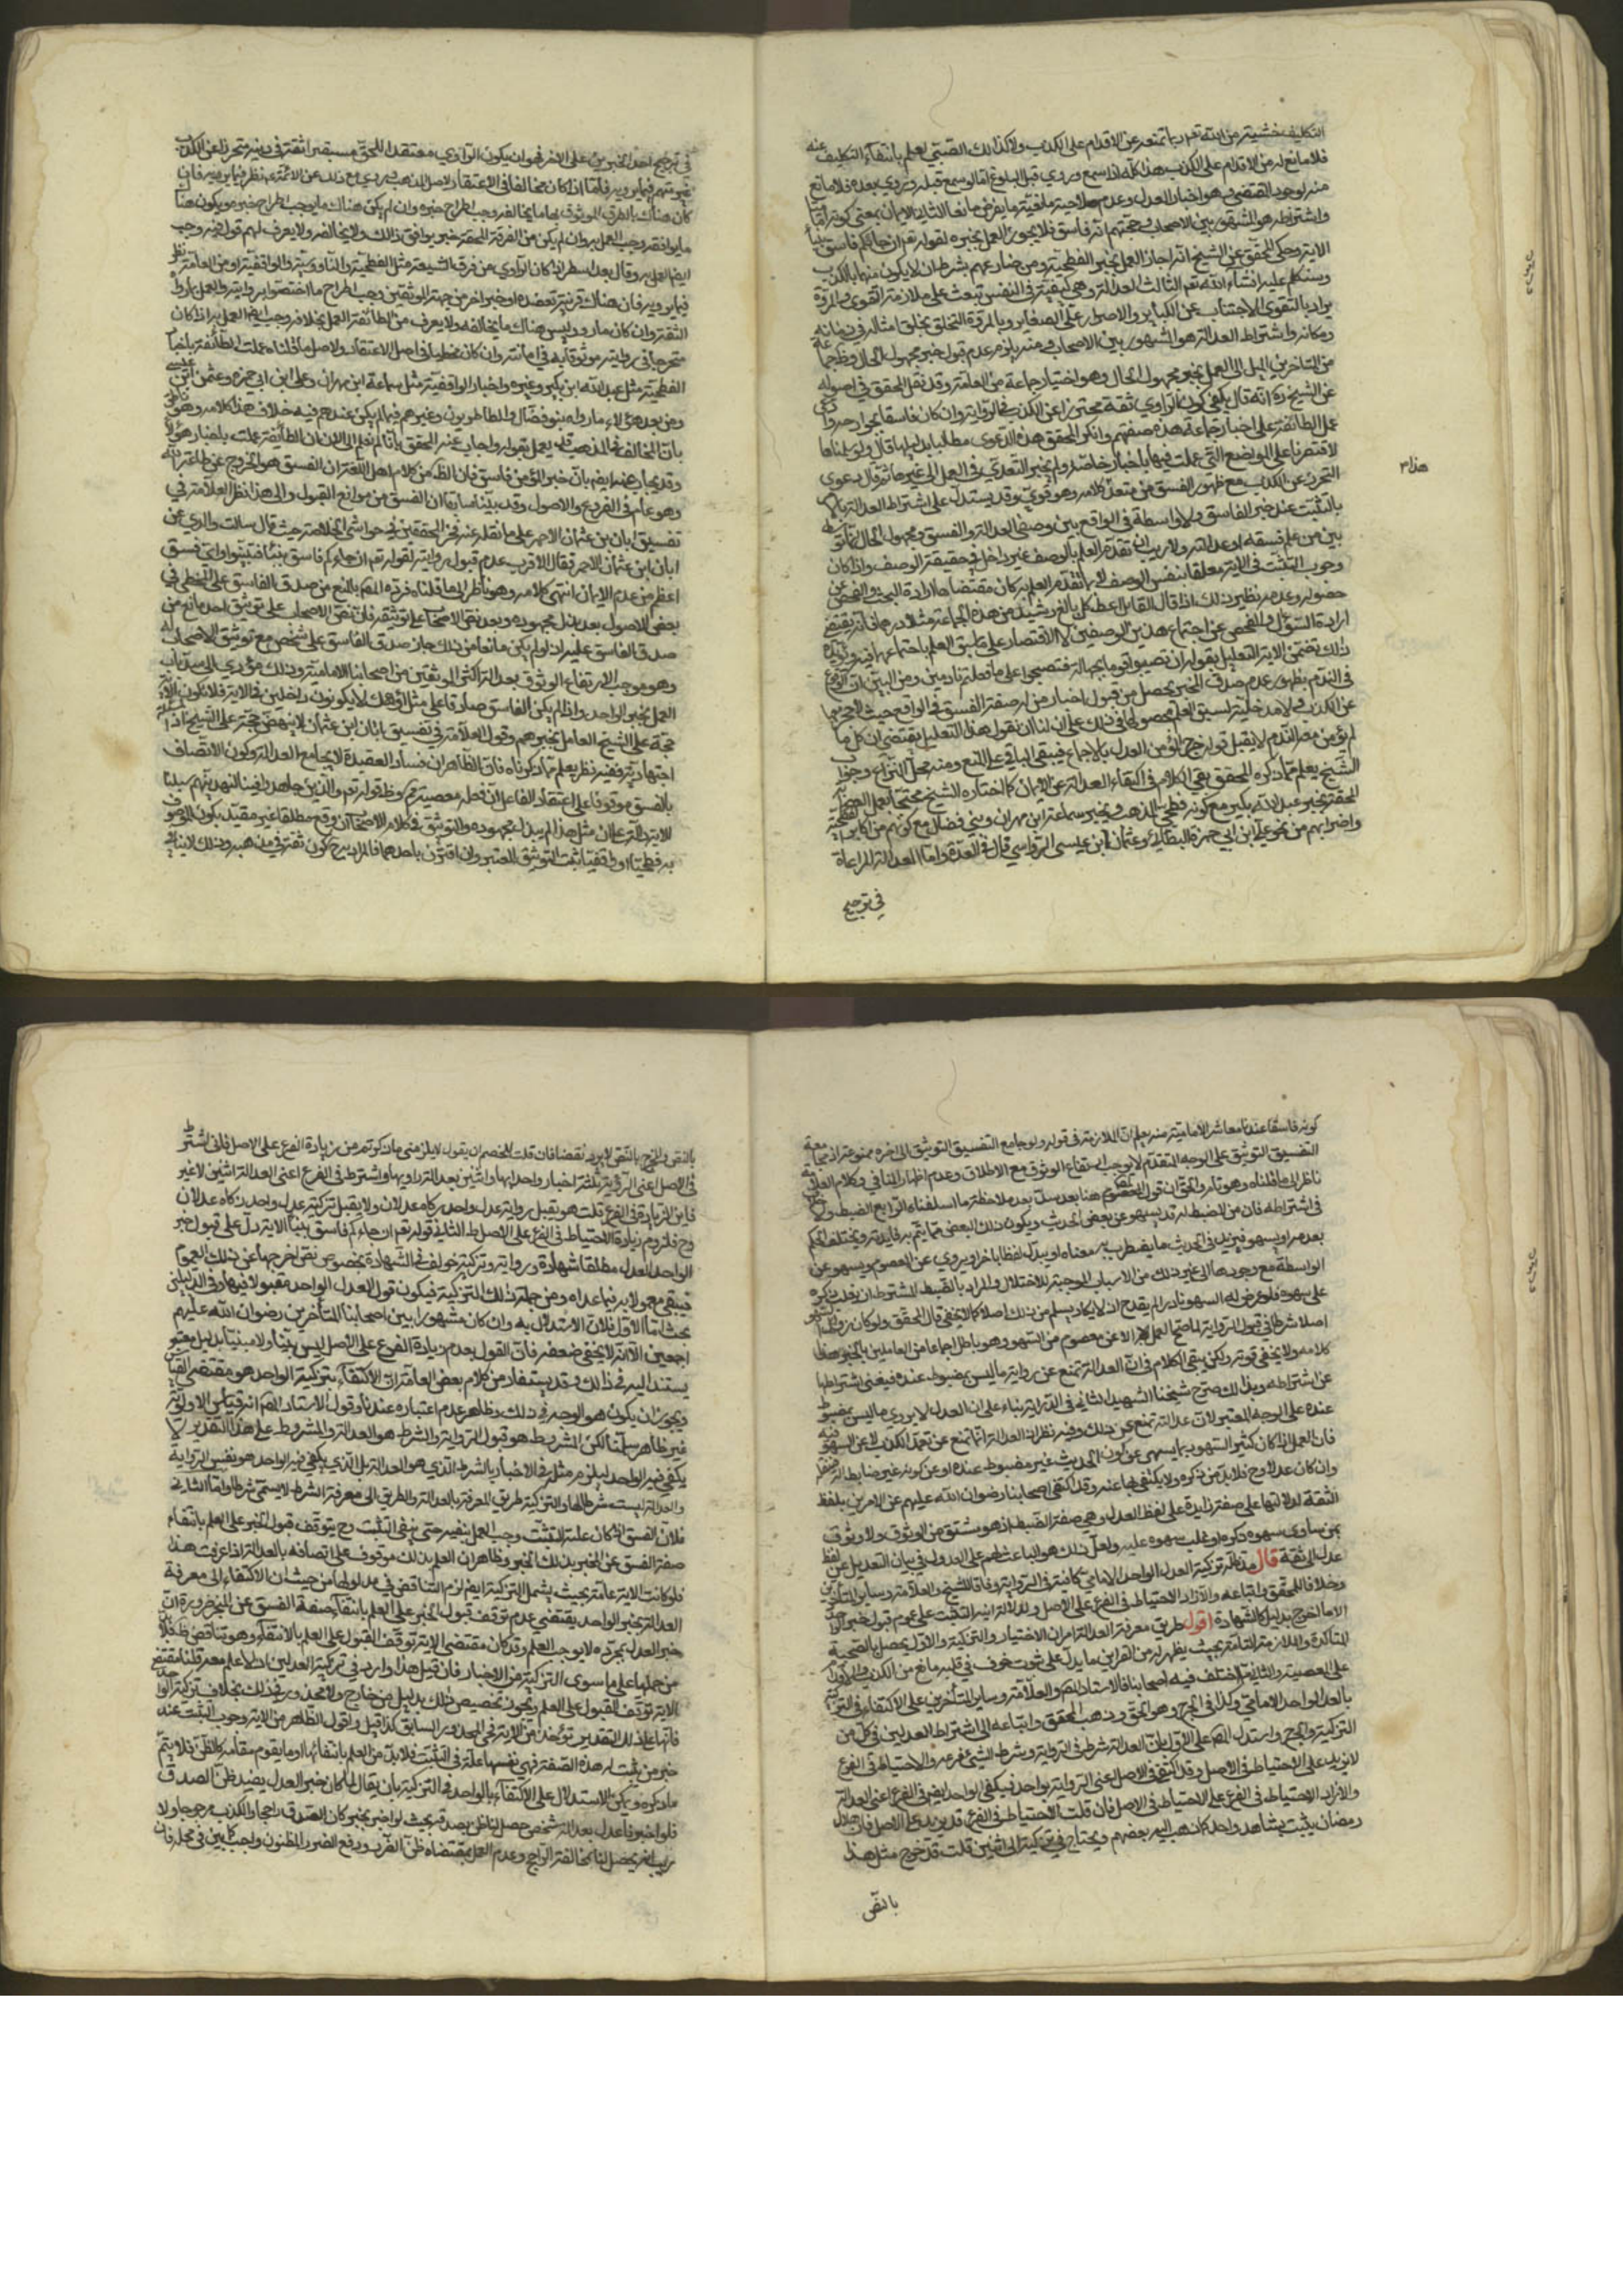 التكليف خشية من الله تعم ربما تمنعه عن الاقدام على الكذب ولا كذلك الصبي لعلمه بانتفاء التكليف عنه
فلا مانع له من الاقدام على الكذب هذا كله اذا سمع وروي قبل البلوغ اما لو سمع قبله وروي بعده فلا مانع
منه لوجود المقتضي وهو اخبار العدل وعدم صلاحية ما فيه ما يفرض مانعا الثاني الايمان بمعنى كونه اماميا
واشتراطه هو المشهور بين الاصحاب وحجتهم انه فاسق فلا يجوز العمل بخبره لقوله تعم ان جاءكم فاسق بنبأ
الاية وحكى المحقق عن الشيخ انه اجاز العمل بخبر الفطحية ومن ضارعهم بشرط ان لا يكون متهما بالكذب
وسنتكلم عليه انشاء الله تعم الثالث العدالة وهي كيفية في النفس تبعث على ملازمة التقوى والمروة
يراد بالتقوى الاجتناب عن الكبائر والاصرار على الصغاير وبالمروة التخلق بخلق امثاله في زمانه
ومكانه واشتراط العدالة هو المشهور بين الاصحاب ومنه يلزم عدم قبول خبر مجهول الحال وظ جماعة
من المتاخرين الميل الى العمل بخبر مجهول الحال وهو اختيار جماعة من العامة وقد نقل المحقق في اصوله
عن الشيخ ره انه قال يكفي كون الراوي ثقة محترزا عن الكذب في الرواية وان كان فاسقا بجوارحه وادعى
عمل الطائفة على اخبار جماعة هذه صفتهم وانكر المحقق هذه الدعوى مطالبا بدليلها قال ولو سلمناها
لاقتصرنا على المواضع التي عملت فيها باخبار خاصة ولم يجز التعدي في العمل الى غيرها ثم قال دعوى
هذا م
التحرز عن الكذب مع ظهور الفسق من متعد كلامه وهو قوي وقد يستدل على اشتراط العدالة بالامر
بالتثبت عند خبر الفاسق ولا واسطة في الواقع بين وصفي العدالة والفسق ومجهول الحال متوسط
بين من علم فسقه او عدالته ولا ريب ان تقدم العلم بالوصف غير داخل في حقيقة الوصف واذا كان
وجوب التثبت في الاية معلقا بنفس الوصف لا بما تقدم العلم به كان مقتضاها ارادة البحث والفحص عن
حصوله وعدمه نظير ذلك اذا قال القائل اعط كل بالغ رشيد من هذه الجماعة مثلا درهما فانه يقتضي
ارادة السؤال والفحص عن اجتماع هذين الوصفين لا الاقتصار على من سبق العلم باجتماعهما فيه ويؤيده
ذلك تضمن الاية التعليل بقوله ان تصيبوا قوما بجهالة فتصبحوا على ما فعلتم نادمين ومن البين ان الوقوع
في الندم بظهور عدم صدق الخبر يحصل من قبول اخبار من له صفة الفسق في الواقع حيث لا حجر بها
عن الكذب فلا مدخلية لسبق العلم بحصولها في ذلك على ان لنا ان نقول هذا التعليل يقتضي ان كل ما
لم يؤمن معه الندم لا يقبل قوله خرج المؤمن العدل بالاجماع فيبقى الباقي على المنع ومنه محل النزاع وجواب
الشيخ يعلم مما ذكره المحقق بقي الكلام في اكتفاء العدالة عن الايمان كما اختاره الشيخ محتجا بعمل الصحابة
المحقة بخبر عبد الله بن بكير مع كونه فطحي المذهب وبخبر سماعة ابن مهران وبني فضال مع كونهم من اكابر الفطحية
واضرابهم من نحو علي ابن ابي حمزة البطائني وعثمان ابن عيسى الرواسي قال في العدة واما العدالة المراعاة
في ترجيح
في ترجيح احد الخبرين على الاخر فهو ان يكون الراوي معتقدا للحق مستبصرا ثقة في دينه متحرجا عن الكذب
غير متهم فيما يرويه فاما اذا كان مخالفا في الاعتقاد لاصل المذهب وروى مع ذلك عن الائمة ع نظر فيما يرويه فان
كان هناك بالطرق الموثوق بها ما يخالفه وجب اطراح خبره وان لم يكن هناك ما يوجب اطراح خبره ويكون هنا
ما يوافقه وجب العمل به وان لم يكن من الفرقة المحقة خبر يوافق ذلك ولا يخالفه ولا يعرف لهم قول فيه وجب
ايضا العمل به وقال بعد اسطر اذا كان الراوي من فرق الشيعة مثل الفطحية والناووسية والواقفية او من العامة نظر
فيما يرويه فان هناك قرينة تعضده او خبر اخر من جهة الموثقين وجب اطراح ما اختصوا بروايته والعمل بما رواه
الثقة وان كان ما رووه ليس هناك ما يخالفه ولا يعرف من الطائفة العمل بخلافه وجب ايضا العمل به اذا كان
متحرجا في روايته موثوقا به في امانته وان كان مخطيا في اصل الاعتقاد ولاصل ما قلناه عملت الطائفة باخبار
الفطحية مثل عبد الله ابن بكير وغيره واخبار الواقفية مثل سماعة ابن مهران وعلي ابن ابي حمزه وعثمن ابن عيسى
ومن بعد هؤلاء ما رواه بنو فضال والطاطريون وغيرهم فيما لم يكن عندهم فيه خلاف هذا كلامه وهو
بان المخالف في المذهب يعمل بقوله واجاب عنه المحقق بانا لم نعلم الى الان ان الطائفة عملت باخبار هؤلاء
وقد يجاب عنه ايضا بان خبر المؤمن فاسق فان الظ من كلام اهل اللغة ان الفسق هو الخروج عن طاعة الله
وهو عام في الفروع والاصول وقد بينا سابقا ان الفسق من موانع القبول والى هذا نظر العلامة في
تفسيق ابان بن عثمان الاحمر على ما نقله عنه فخر المحققين في حواشي الخلاصة حيث قال سالت والدي عن
ابان ابن عثمان الاحمر فقال الاقرب عدم قبول روايته لقوله تعم ان جاءكم فاسق بنبأ فتبينوا واي فسق
اعظم من عدم الايمان انتهى كلامه وهو ناظر الى ما قلناه فرده المص بالمنع من صدق الفاسق على المخطي في
بعض الاصول بعد بذل مجهوده وبعد نص الاصحاب على توثيقه فان نص الاصحاب على توثيق احد مانع من
صدق الفاسق عليه اذ لو لم يكن مانعا من ذلك جاز صدق الفاسق على شخص مع توثيق الاصحاب له
وهو موجب لارتفاع الوثوق بعدالة اكثر الموثقين من اصحابنا الامامية وذلك مؤدي الى سد باب
العمل بخبر الواحد واذا لم يكن الفاسق صادقا على مثل هؤلاء لا يكونون داخلين في الاية فلا تكون الاية
حجة على الشيخ العامل بخبرهم وقول العلامة في تفسيق ابان ابن عثمان لا ينهض حجة على الشيخ
اجتهادية ففيه نظر يعلم مما ذكرناه فان الظاهر ان فساد العقيدة لا يجامع العدالة وكون الاتصاف
بالفسق موقوفا على اعتقاد الفاعل ان فعله معصية تحكم وظ قوله تعم والذين جاهدوا فينا لنهدينهم سبلنا
الاية دالة على ان مثل هذا لم يبذل مجهوده والتوثيق في كلام الاصحاب ان وقع مطلقا غير مقيد بكون الموصوف
به فطحيا او واقفيا ثبت التوثيق المعتبر وان اقترن باحدهما فالمراد به ح كون ثقة في مذهبه وذلك لا ينافي
كونه فاسقا عندنا معاشر الامامية ومنه يعلم ان الملازمة في قوله ولو جامع التفسيق التوثيق الى اخره ممنوعة اذ مجامعة
التفسيق التوثيق على الوجه المتقدم لا يوجب ارتفاع الوثوق مع الاطلاق وعدم اظهار المنافي وكلام العلامة
ناظر الى ما قلناه وهو تام والحق ان قول المص هنا بعد ملاحظة ما اسلفناه الرابع الضبط ولا خلاف
في اشتراطه فان من لا ضبط له قد يسهو عن بعض الحديث ويكون ذلك البعض مما يتم به فايدته ويختلف الحكم
بعدمه او يسهو فيزيد في الحديث ما يضطرب به معناه او يبدل لفظا باخر او يروي عن المعصوم ويسهو عن
الواسطة مع وجودها الى غير ذلك من الاسباب الموجبة للاختلال والمراد بالضبط المشترط ان يغلب ذكره
على سهوه فلو عرض له السهو نادرا لم يقدح اذ لا يكاد يسلم من ذلك اصلا كما لا يخفى قال المحقق ولو كان زوال السهو
اصلا شرطا في قبول الرواية لما صح العمل الا عن معصوم من السهو وهو باطل اجماعا من العاملين بالخبر هذا
كلامه ولا يخفى قوته ولكن بقي الكلام في ان العدالة تمنع عن رواية ما ليس بمضبوط عنده فيغني اشتراطها
عن اشتراطه وبذلك صرح شيخنا الشهيد الثاني في الدراية بناء على ان العدل لا يروي ما ليس بمضبوط
عنده على الوجه المعتبر لان عدالته تمنع عن ذلك وفيه نظر لان العدالة انما تمنع عن تعمد الكذب لا عن السهو فيه
فان العدل اذا كان كثير السهو ربما يسهى عن كون الحديث غير مضبوط عنده او عن كونه غير ضابط
وان كان عدلا وح فلا بد من ذكره ولا يكتفي بها عنه وقد اكتفى اصحابنا رضوان الله عليهم عن الامرين بلفظ
الثقة لدلالتها على صفة زايدة على لفظ العدل وهي صفة الضبط اذ هو مشتق من الوثوق ولا وثوق
بمن ساوى سهوه ذكره او غلب سهوه عليه ولعل ذلك هو الباعث لهم على العدول في بيان التعديل عن لفظ
عدل الى ثقة قال مد ظله تزكية العدل الواحد الامامي كافية في الرواية وفاقا للشيخ والعلامة وساير المتأخرين
وخلافا للمحقق واتباعه والا زاد الاحتياط في الفرع على الاصل ولدلالة اية التثبت على عموم قبول خبر الواحد
الا ما اخرج بدليل كالشهادة اقول طريق معرفة العدالة امران الاختبار والتزكية والاول يحصل بالصحبة
المتأكدة والملازمة التامة بحيث يظهر له من القراين ما يدل على ثبوت خوف في قلبه مانع من الكذب والاقدام
على المعصية والثاني مما اختلف فيه اصحابنا فالاستاد المص والعلامة وساير المتأخرين على الاكتفاء في التزكية
بالعدل الواحد الامامي وكذا في الجرح وهو الحق وذهب المحقق واتباعه الى اشتراط العدلين في كل من
التزكية والجرح واستدل المص على الاول بان العدالة شرط في الرواية وشرط الشيء فرعه والاحتياط في الفرع
لا يزيد على الاحتياط في الاصل وقد اكتفى في الاصل اعني الرواية بواحد فيكفي الواحد ايضا في الفرع اعني العدالة
والا زاد الاحتياط في الفرع على الاحتياط في الاصل فان قلت الاحتياط في الفرع قد يزيد على الاصل فان هلال
رمضان يثبت بشاهد واحد كما ذهب اليه بعضهم ويحتاج في تزكيته الى اثنين قلت قد خرج مثل هذا
بالنص
بالنص والخرج بالنص لا يرد نقضا فان قلت للخصم ان يقول لا يلزمني ما ذكرتم من زيادة الفرع على الاصل فاني اشترط
في الاصل اعني الرواية ثلثة اخبار واحد بها واثنين بعدالة راويها واشترط في الفرع اعني العدالة اثنين لا غير
فاين الزيادة في الفرع قلت هو يقبل رواية عدل واحد زكاه عدلان ولا يقبل تزكية عدل واحد زكاه عدلان
وح فلزوم زيادة الاحتياط في الفرع على الاصل ظ الثاني قوله تعم ان جاءكم فاسق بنبأ الاية دل على قبول خبر
الواحد العدل مطلقا شهادة ورواية وتزكية خولف في الشهادة بخصوص نص اخرجها عن ذلك العموم
فيبقى معمولا به فيما عداه ومن جملة ذلك التزكية فيكون قول العدل الواحد مقبولا فيها وفي الدليلين
بحث اما الاول فلان الاستدلال به وان كان مشهورا بين اصحابنا المتأخرين رضوان الله عليهم
اجمعين الا انه لا يخفى ضعفه فان القول بعدم زيادة الفرع على الاصل ليس بينا ولا مبينا بدليل معتبر
يستند اليه في ذلك وقد يستفاد من كلام بعض العامة ان الاكتفاء بتزكية الواحد هو مقتضى القياس
ويجوز ان يكون هو الوجه في ذلك وظاهر عدم اعتباره عندنا وقول الاستاد المص انه قياس الاولوية
غير ظاهر سلمنا لكن المشروط هو قبول الرواية والشرط هو العدالة والمشروط على هذا التقدير لا
يكفي فيه الواحد ليلزم مثله في الاخبار بالشرط الذي هو العدالة بل الذي يكفي فيه الواحد هو نفس الرواية
والعدالة ليست شرطا لها والتزكية طريق المعرفة بالعدالة والطريق الى معرفة الشرط لا يسمى شرطا واما الثاني
فلان الفسق اذا كان علة التثبت وجب العمل بنفيه حتى ينفي التثبت وح يتوقف قبول الخبر على العلم بانتفاء
صفة الفسق عن المخبر بذلك الخبر وظاهر ان العلم بذلك موقوف على اتصافه بالعدالة اذا عرفت هذا
فلو كانت الاية عامة بحيث يشمل التزكية ايضا لزم التناقض في مدلولها من حيث ان الاكتفاء في معرفة
العدالة بخبر الواحد يقتضي عدم توقف قبول الخبر على العلم بانتفاء صفة الفسق عن المخبر ضرورة ان
خبر العدل بمجرده لا يوجب العلم وقد كان مقتضى الاية توقف القبول على العلم بالانتفاء وهو تناقض ظ فلا بد
من حملها على ما سوى التزكية من الاخبار فان قيل هذا وارد في تزكية العدلين اذ لا علم معه قلنا مقتضى
الاية توقف القبول على العلم ويجوز تخصيص ذلك بدليل من خارج ولا محذور في ذلك بخلاف تزكية الواحد
فانها على ذلك التقدير تؤخذ من الاية فيجيء المحذور السابق كذا قيل واقول الظاهر من الاية وجوب التثبت عند
خبر من يثبت له هذه الصفة فهي نفسها علة في التثبت فلا بد من العلم بانتفائها او ما يقوم مقامه كالظن فلا يتم
ما ذكره ويمكن الاستدلال على الاكتفاء بالواحد في التزكية بان يقال لما كان خبر العدل يفيد ظن الصدق
فلو اخبر فاعدل بعدالة شخص حصل الظن بصدقه بحيث لو اخبر بخبر كان الصدق راجحا والكذب مرجوحا ولا
ريب انه يحصل لنا بمخالفة الراجح وعدم العمل بمقتضاه ظن الضرر ودفع الضرر المظنون واجب كما بين في محله فان